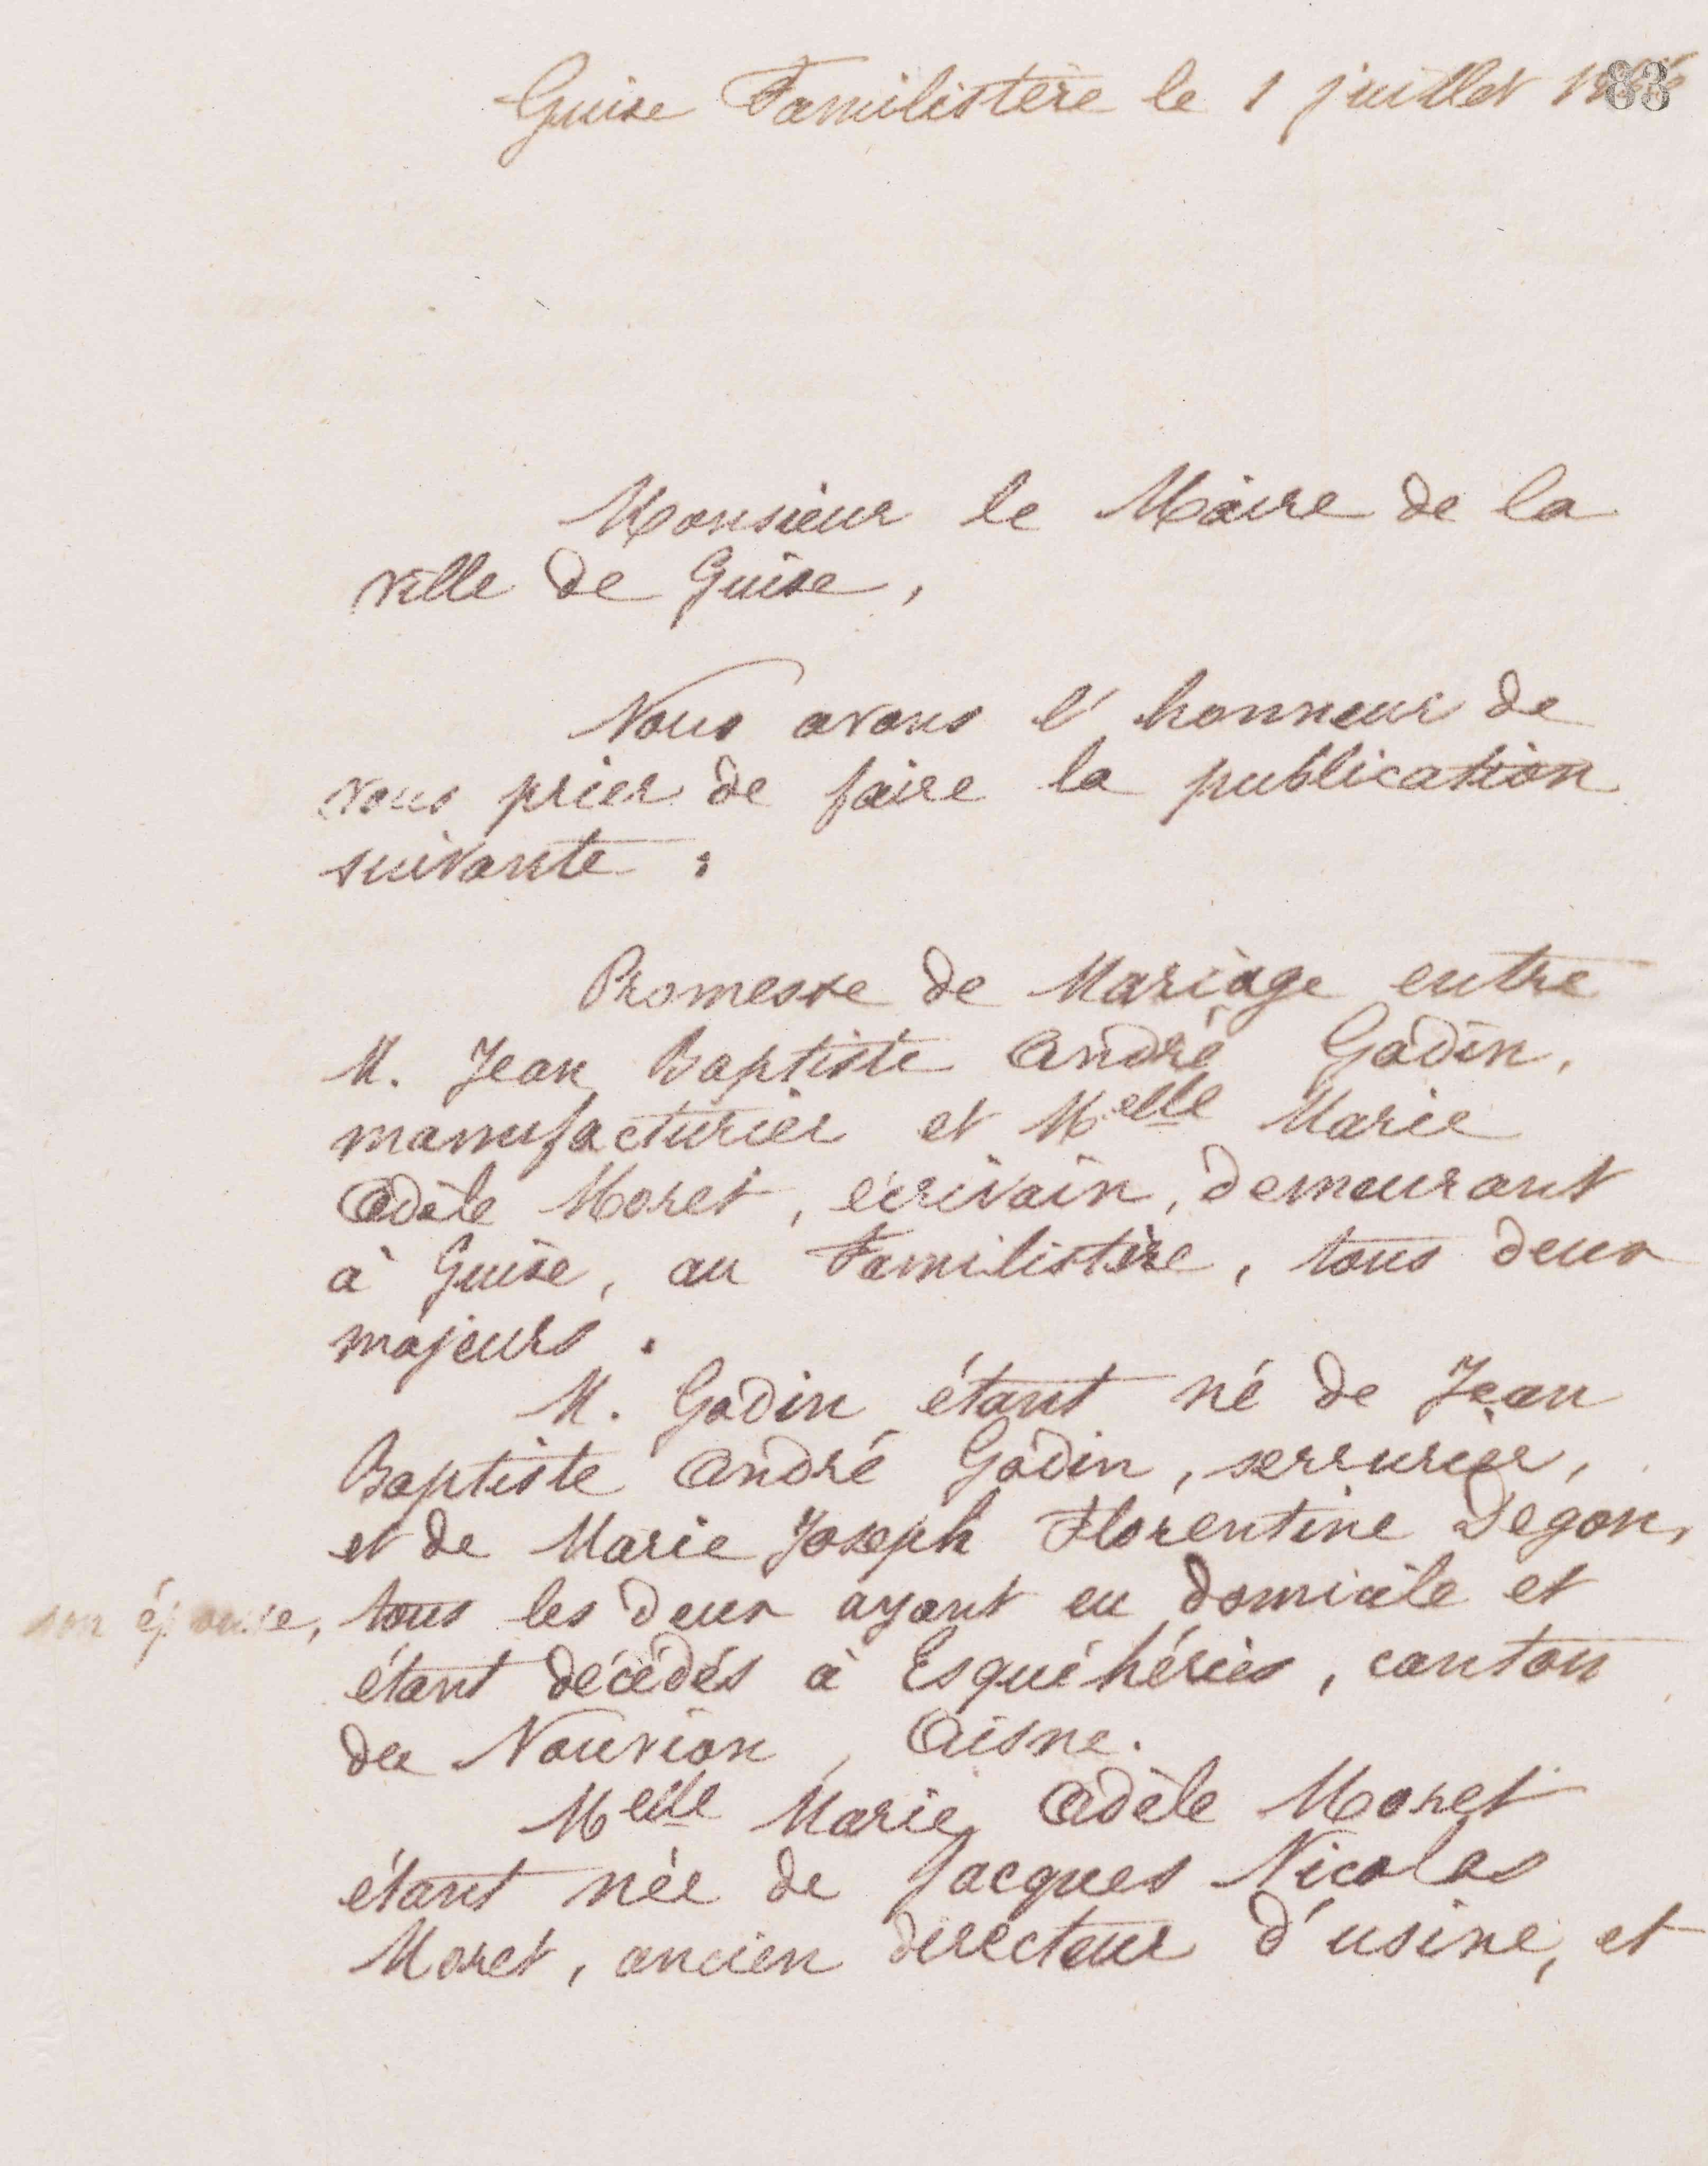 Guise Familistère le 1 juillet
83
Monsieur le Maire de la
ville de Guise,
Nous avons l'honneur de
vous prier de faire la publication
suivante :
Promesse de Mariage entre
M. Jean Baptiste André Godin,
manufacturier et Melle Marie
Adèle Moret, écrivain, demeurant
à Guise, au Familistère, tous deux
majeurs.
M. Godin étant né de Jean
Baptiste André Godin, serrurier,
et de Marie Joseph Florentine Degon,
son épouse, tous les deux ayant eu domicile et
étant décédés à Esquéhéries, canton
du Nouvion, Aisne.
Melle Marie Adèle Moret
étant née de Jacques Nicolas
Moret, ancien directeur d'usine, et